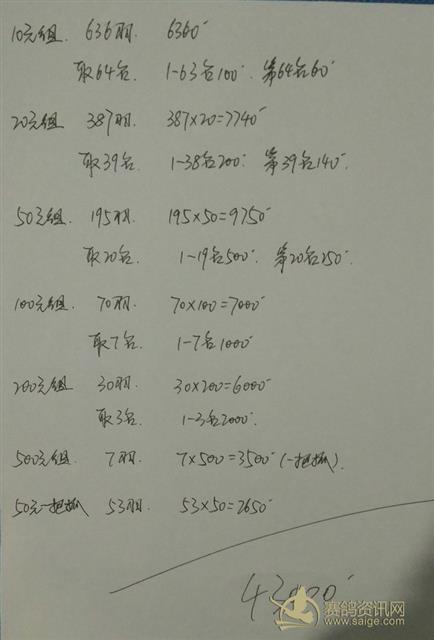 10元组. 636羽. 6360-
取64名. 1-63名100- 第64名60-
20元组 387羽. 387×20=7740-
取39名. 1-38名200- 第39名140-.
50元组. 195羽. 195×50=9750-
取20名. 1-19名500-. 第20名250-.
100元组. 70羽. 70×100=7000-
取7名. 1-7名1000-
200元组 30羽. 30×200=6000-
取3名. 1-3名2000-.
500元组. 7羽. 7×500=3500-(一把抓).
50元一把抓 53羽. 53×50=2650-
43000-
赛鸽资讯网
www.saige.com